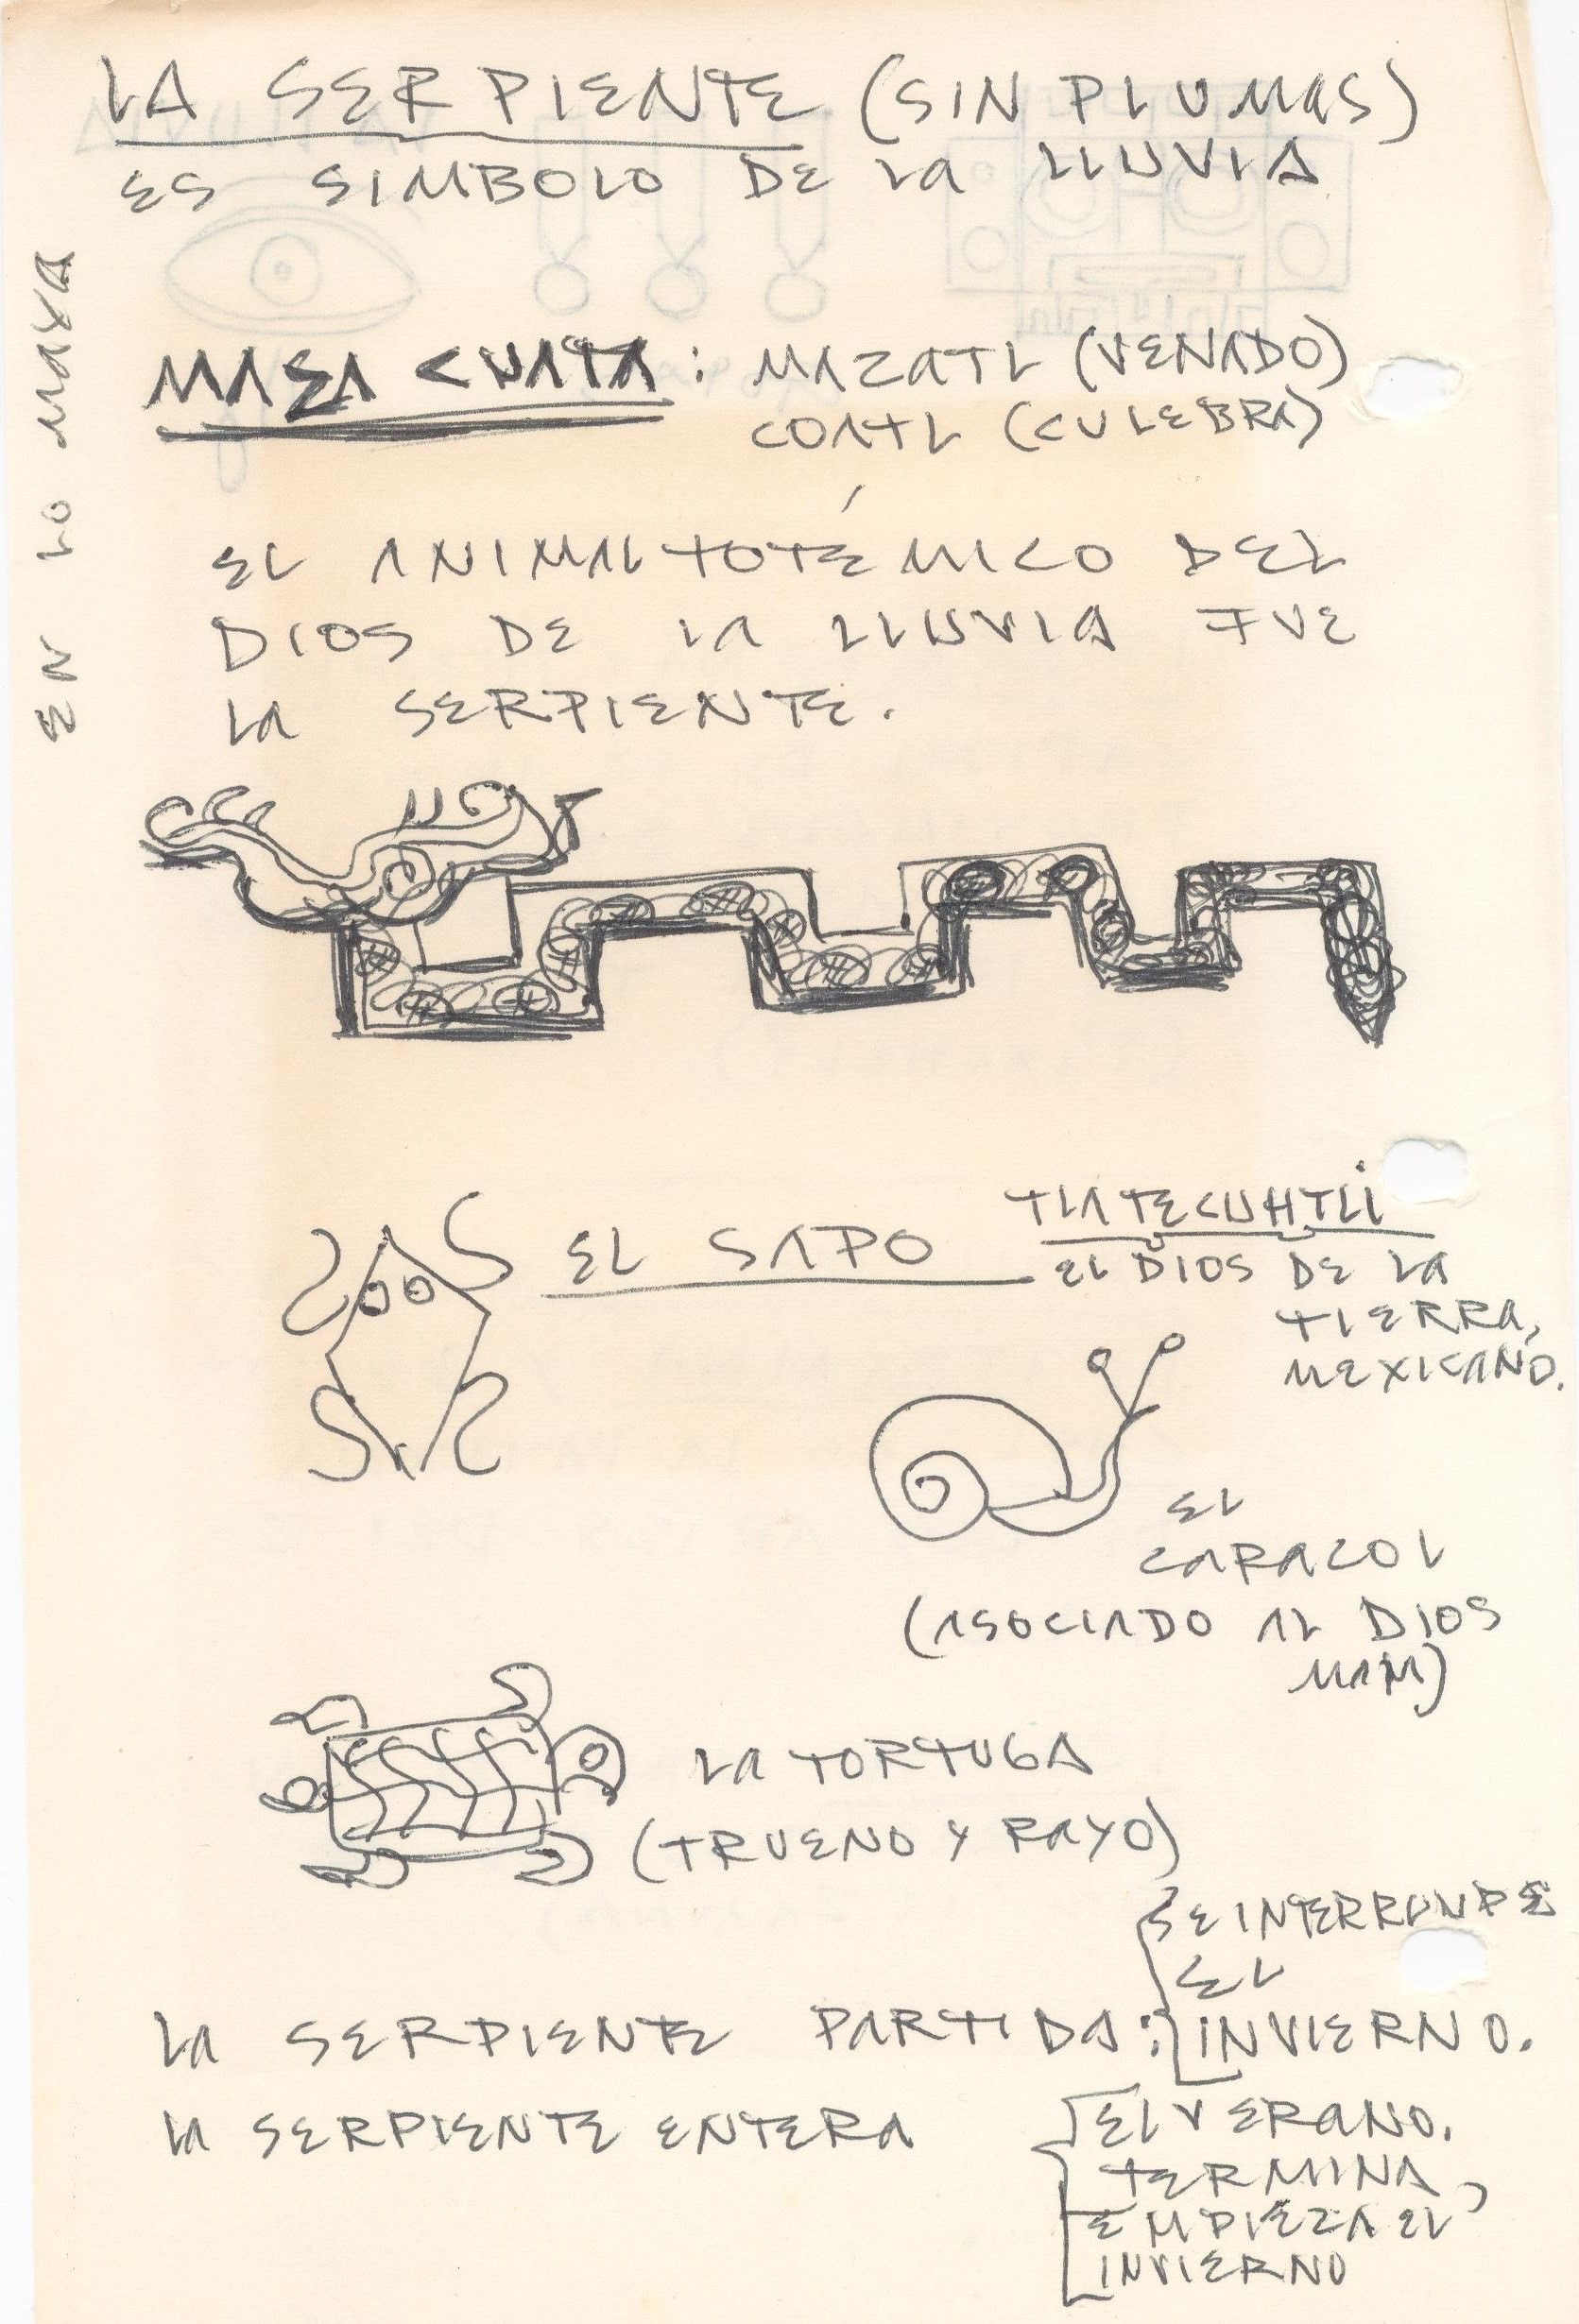 LA SERPIENTE (SIN PLUMAS)
ES SIMBOLO DE LA LLUVIA
EN LO MAYA
MASA CUATA: MAZATL (VENADO)
COATL (CULEBRA)
EL ANIMAL TOTÉMICO DEL
DIOS DE LA LLUVIA FUE
LA SERPIENTE.
EL SAPO TLATECUHTLI
EL DIOS DE LA
TIERRA,
MEXICANO.
EL
CARACOL
(ASOCIADO AL DIOS
MAM)
LA TORTUGA
(TRUENO Y RAYO)
SE INTERRUNPE
EL
LA SERPIENTE PARTIDA: INVIERNO.
LA SERPIENTE ENTERA EL VERANO.
TERMINA,
EMPIEZA EL
INVIERNO